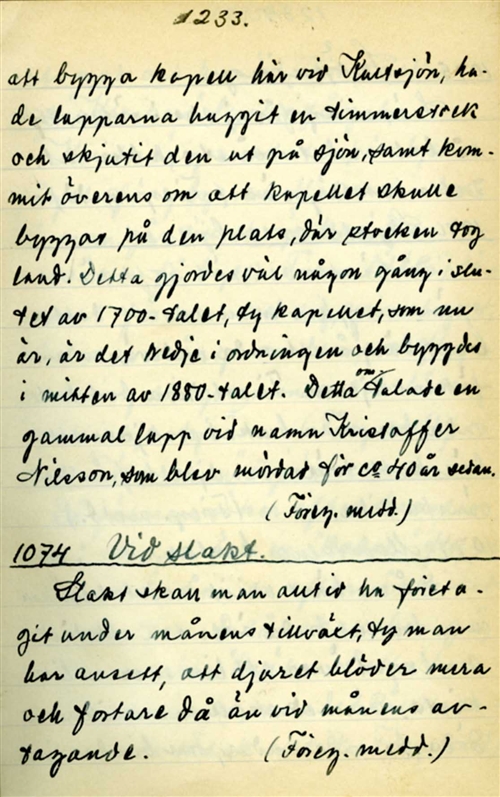 1233.
att bygga kapell här vid Kultsjön, ha-
de lapparna huggit en timmerstock
och skjutit den ut på sjön, samt kom-
mit överens om att kapellet skulle
byggas på den plats, där stocken tog
land. Detta gjordes väl någon gång i slu-
tet av 1700-talet, ty kapellet, som nu
är, är det tredje i ordningen och byggdes
i mitten av 1880-talet. Detta omtalade en
gammal lapp vid namn Kristoffer
Nilsson, som blev mördad för ca 40 år sedan.
(Föreg. medd.)
1074 Vid slakt.
Slakt skall man alltid ha företa-
git under månens tillväxt, ty man
har ansett, att djuret blöder mera
och fortare då än vid månens av-
tagande. (Föreg. medd.)